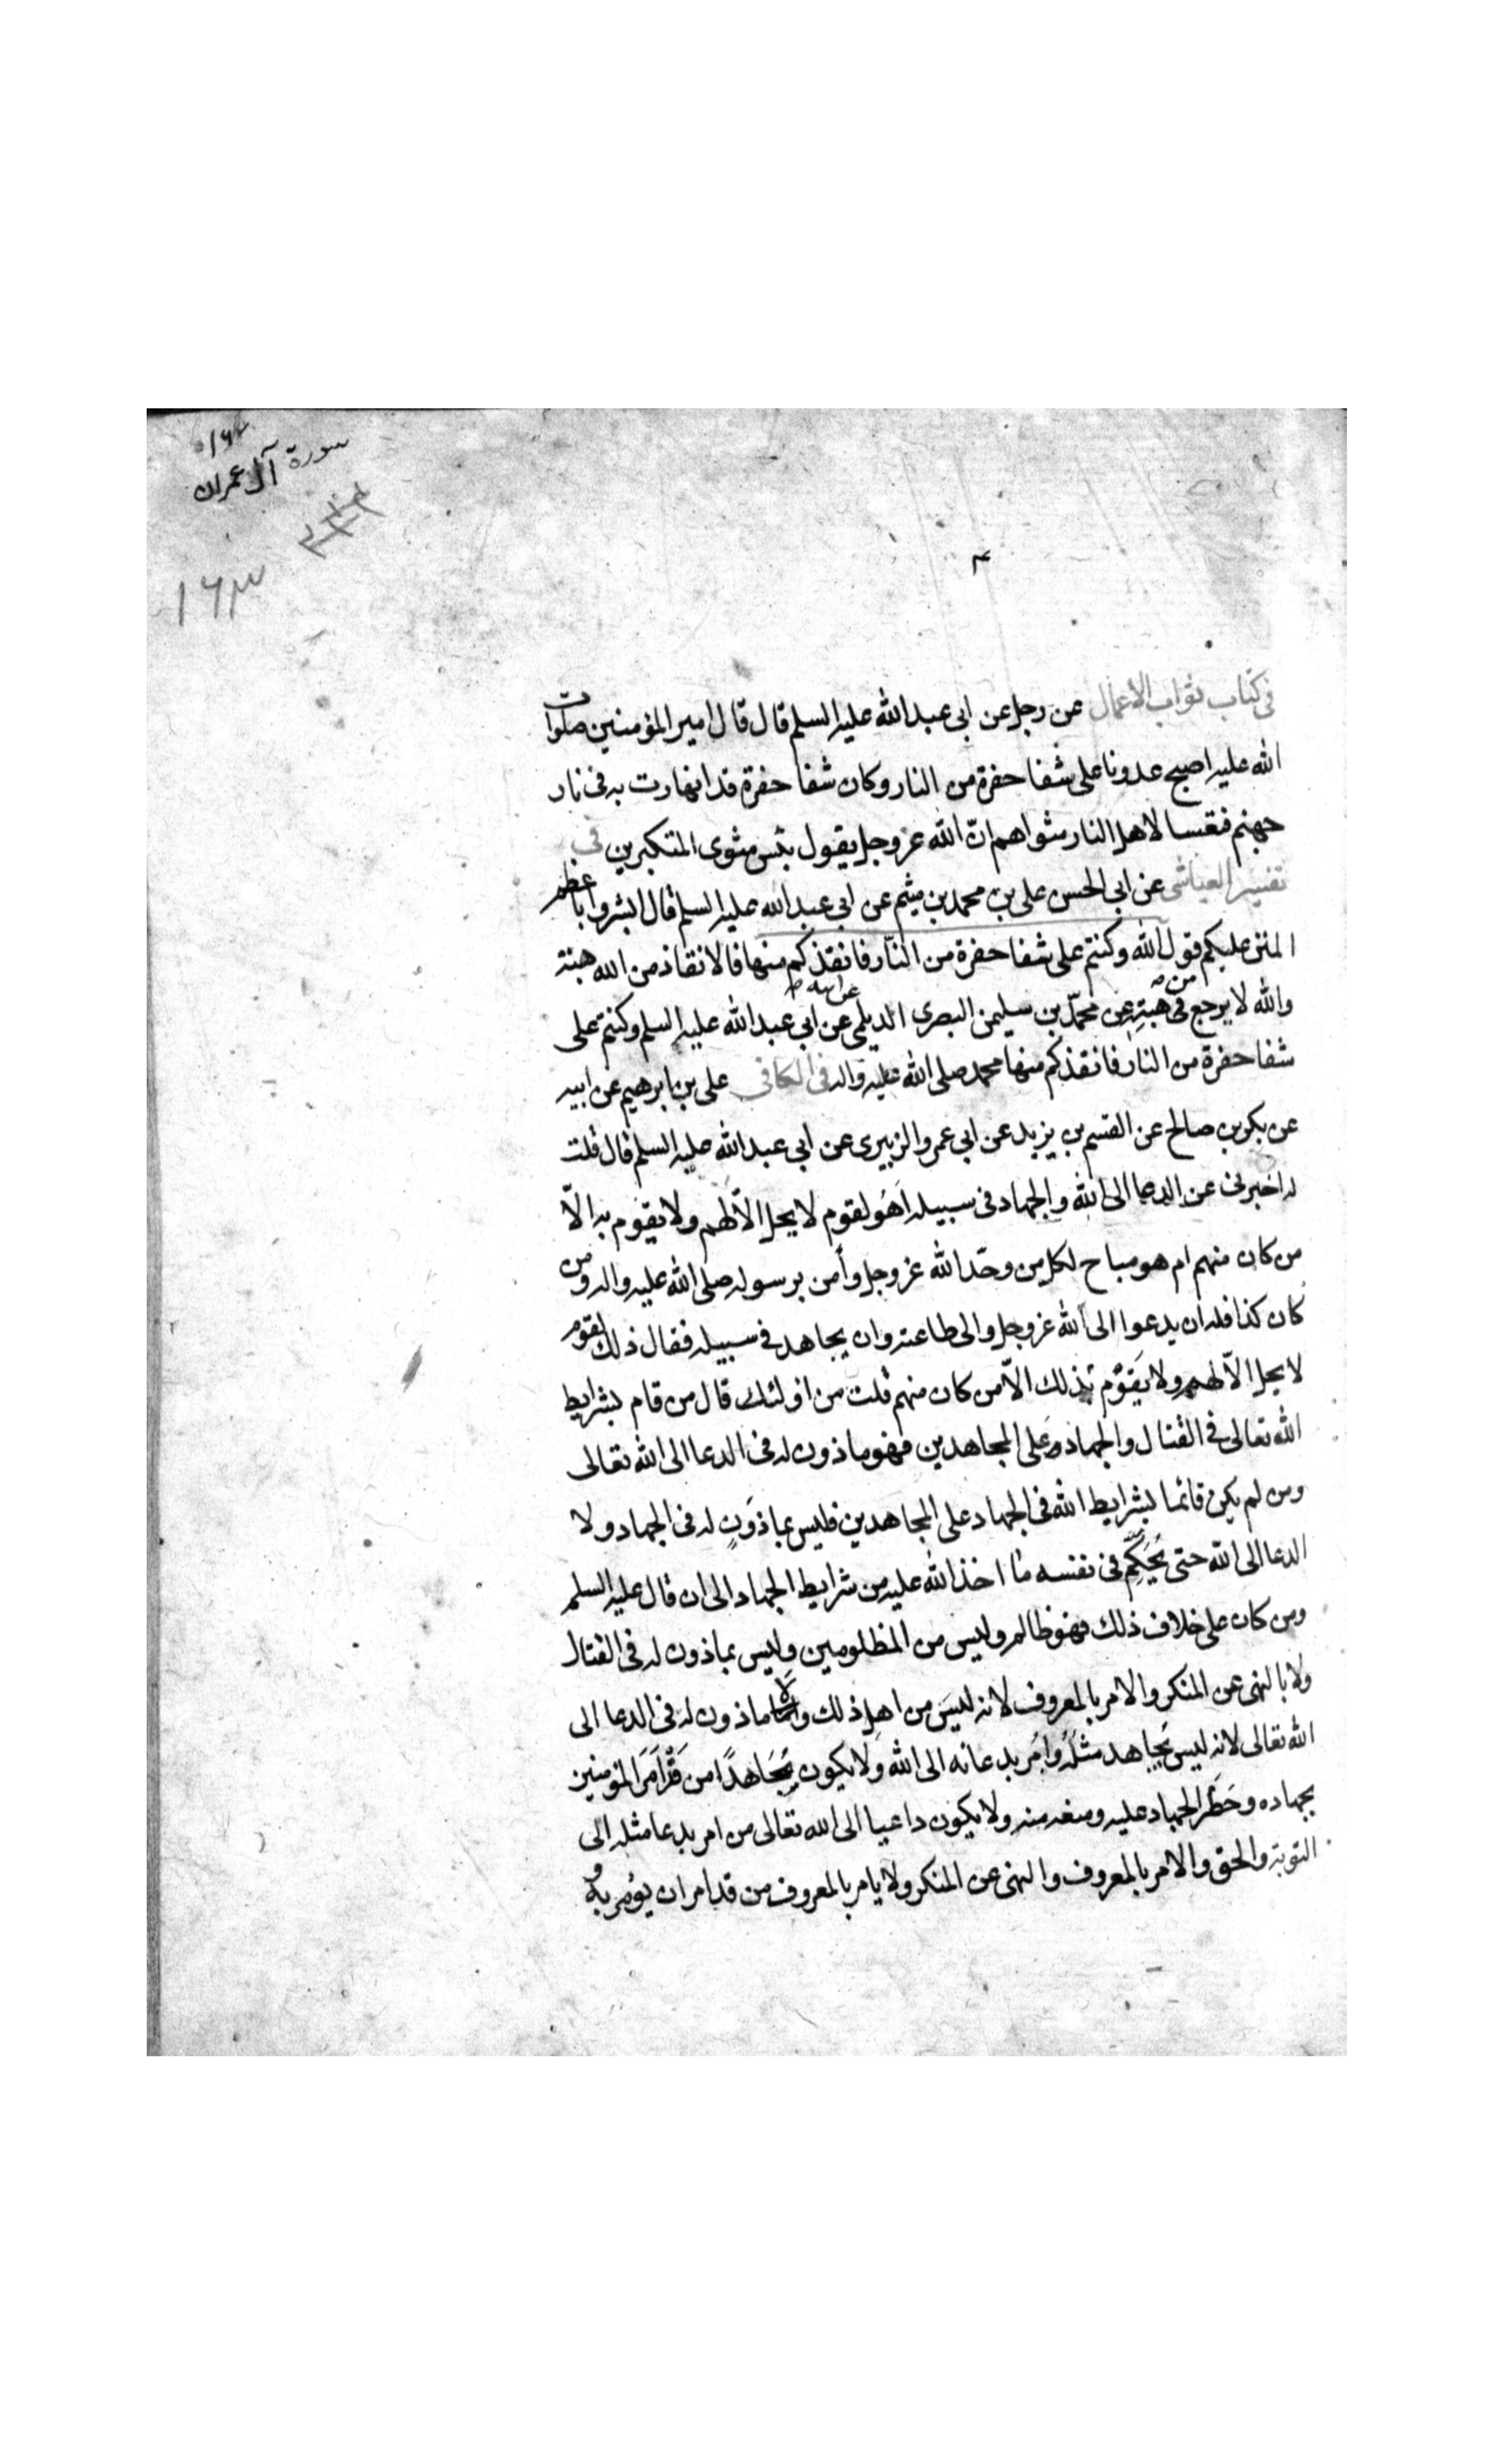 ١٦٢
سورة آل عمران
١٦٣
٣
فى كتاب ثواب الاعمال عن رجل عن ابى عبد الله عليه السلم قال قال امير المؤمنين صلوات
الله عليه اصبح عدونا على شفا حفرة من النار وكان شفا حفرة قد انهارت به فى نار
جهنم فتعسا لاهل النار مثواهم انّ الله عز وجل يقول بئس مثوى المتكبرين فى
تفسير العياشى عن ابى الحسن على بن محمد بن ميثم عن ابى عبد الله عليه السلم قال ابشروا باعظم
المنن عليكم قول الله وكنتم على شفا حفرة من النّار فانقذكم منها فالانقاذ من الله هبة
والله لا يرجع فى من هبته عن محمّد بن سليمن البصرى الديلمى عن ابيه عن ابى عبد الله عليه السلم وكنتم على
شفا حفرة من النار فانقذكم منها محمد صلى الله عليه واله فى الكافى على بن ابرهيم عن ابيه
عن بكر بن صالح عن القسم بن يزيد عن ابى عمرو الزبيرى عن ابى عبد الله عليه السلم قال قلت
له اخبرنى عن الدعا الى الله والجهاد فى سبيله اَهُو لقوم لا يحل الّا لهم ولا يقوم به الّا
من كان منهم ام هو مباح لكل من وحّد الله عز وجل وآمن برسوله صلى الله عليه واله ومن
كان كذا فله ان يدعوا الى الله عز وجل والى طاعته وان يجاهد فى سبيله فقال ذلك لقوم
لا يحل الّا لهم ولا يَقوُم بذلك الّا من كان منهم قلت من اولئك قال من قام بشرايط
الله تعالى فى القتال والجهاد وَعلى المجاهدين فهو ماذون له فى الدعا الى الله تعالى
ومن لم يكن قائما بشرايط الله فى الجهاد على المجاهدين فليس بماذوَنٍ له فى الجهاد ولا
الدعا الى الله حتى يُحَكِّم فى نفسه ما اخذ الله عليه من شرايط الجهاد الى ان قال عليه السلم
ومن كان على خلاف ذلك فهو ظالم وليس من المظلومين وليس بماذون له فى القتال
ولا بالنهى عن المنكر والامر بالمعروف لانه ليسَ من اهل ذلك ولا ماذون له فى الدعا الى
الله تعالى لانه ليس يُجاهد مثلُهُ وامُر بدعائه الى الله وَلا يكون مُجَاهدًا من قَدْ اَمَرَ المؤمنين
بجهاده وحَظَر الجهاد عليه ومنعه منه ولا يكون داعيا الى الله تعالى من امر بدعا مثله الى
التوبة والحق والامر بالمعروف والنهى عن المنكر ولا يامر بالمعروف من قد امر ان يؤمر به و